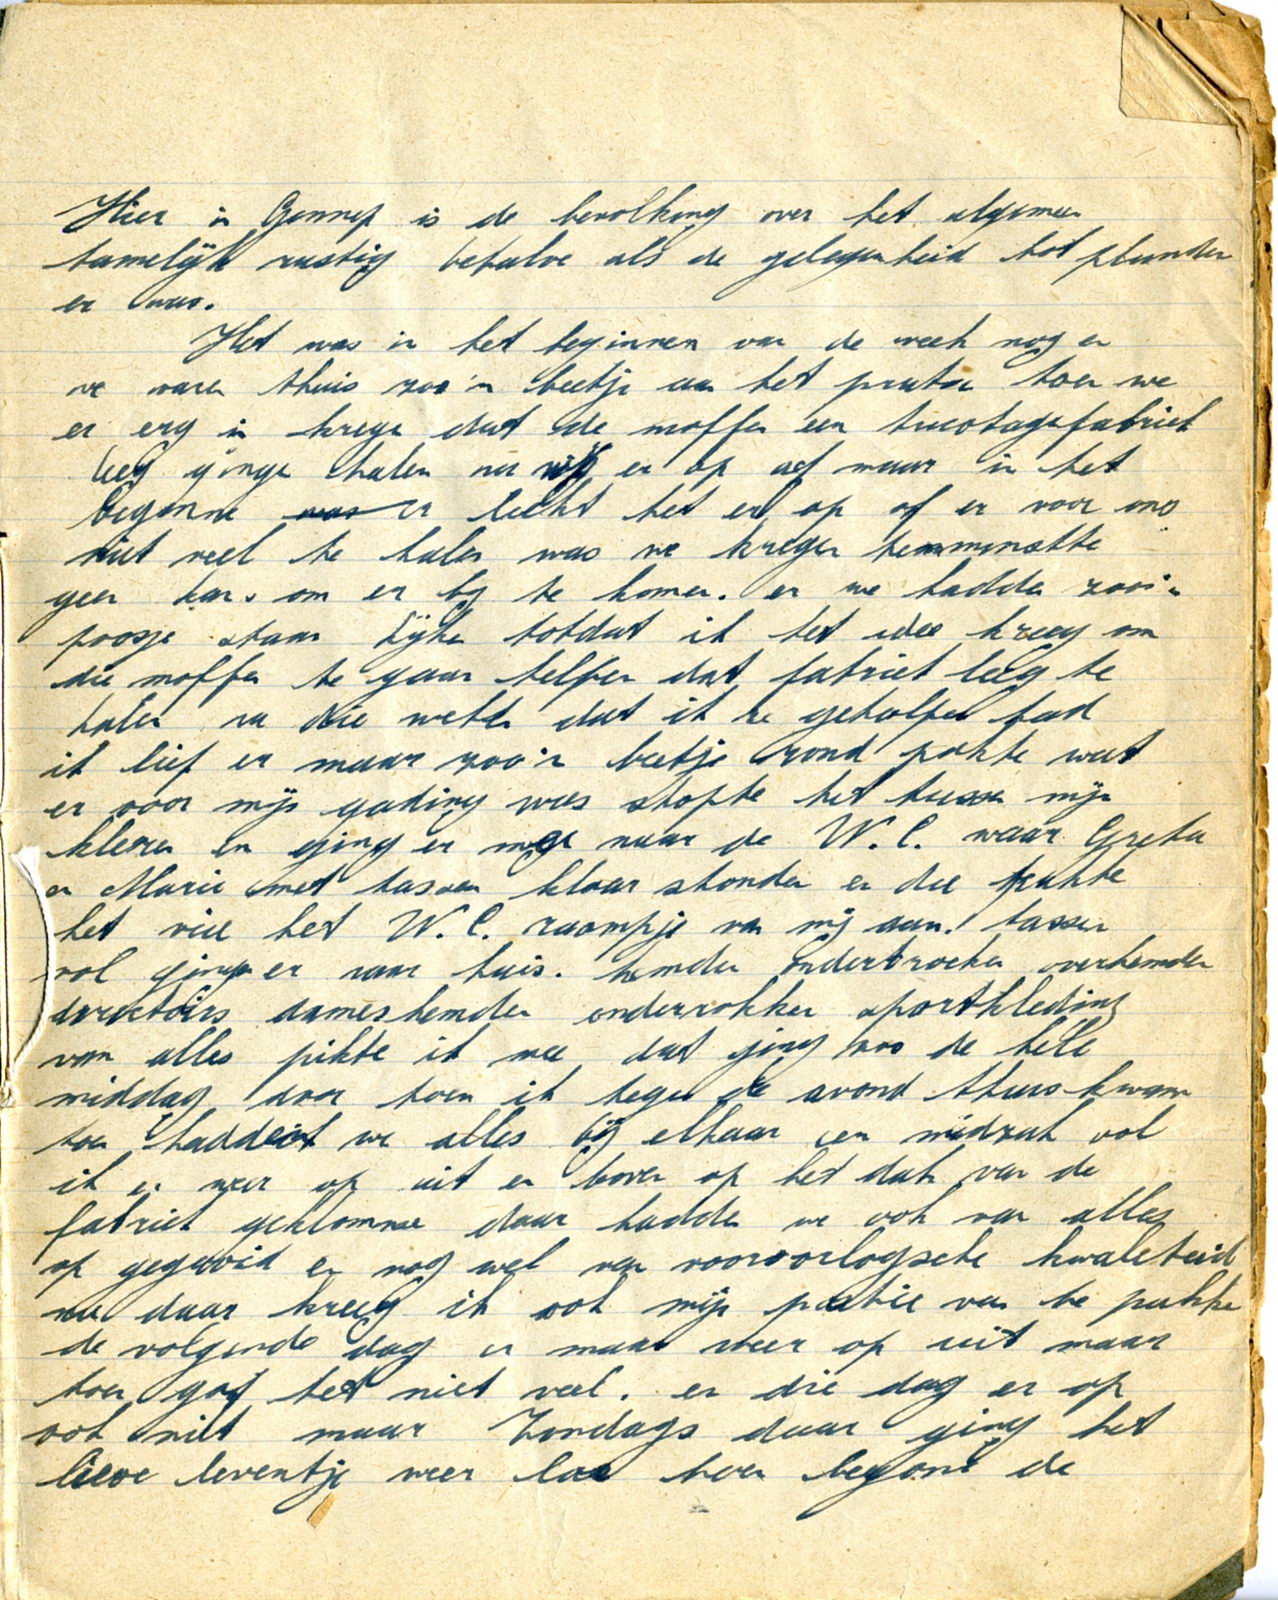 Hier in Gennep is de bevolking over het algemeen
tamelijk rustig behalve als de gelegenheid tot plunder
er was.
Het was in het beginnen van de week nog en
we waren thuis zoo'n beetje aan het praten toen we
er erg in kregen dat de moffen een tricotagefabriek
leeg gingen halen nu wij er op af maar in het
beginne er leekt het er op of er voor ons
niet veel te halen was we kregen temminstte
geen kans om er bij te komen. en we hadden zoo'n
poosje staan kijken totdat ik het idee kreeg om
die moffen te gaan helpen dat fabriek leeg te
halen nu die weten dat ik ze geholpen had
ik liep er maar zoo'n beetje rond pakte wat
er voor mijn gading was stopte het tussen mijn
kleren en ging er mee naar de W.C. waar Greta
en Marie met tassen klaar stonden en die pakte
het via het W.C. raampje van mij aan. tassen
vol gingen naar huis. hemden onderbroeken overhemden
directoirs dameshemden onderrokken sportkleding
van alles pikte ik mee dat ging zoo de hele
middag door toen ik tegen de avond thuis kwam
toen hadden we alles bij elkaar een midzak vol
ik er weer op uit en boven op het dak van de
fabriek geklommen daar hadden we ook van alles
op gegooid en nog wel van vooroorlogsche kwaleteid
nu daar kreeg ik ook mijn paatie van te pakken
de volgende dag er maar weer op uit maar
toen gaf het niet veel. en die dag er op
ook niet maar Zondags daar ging het
lieve leventje weer los toen begonne de